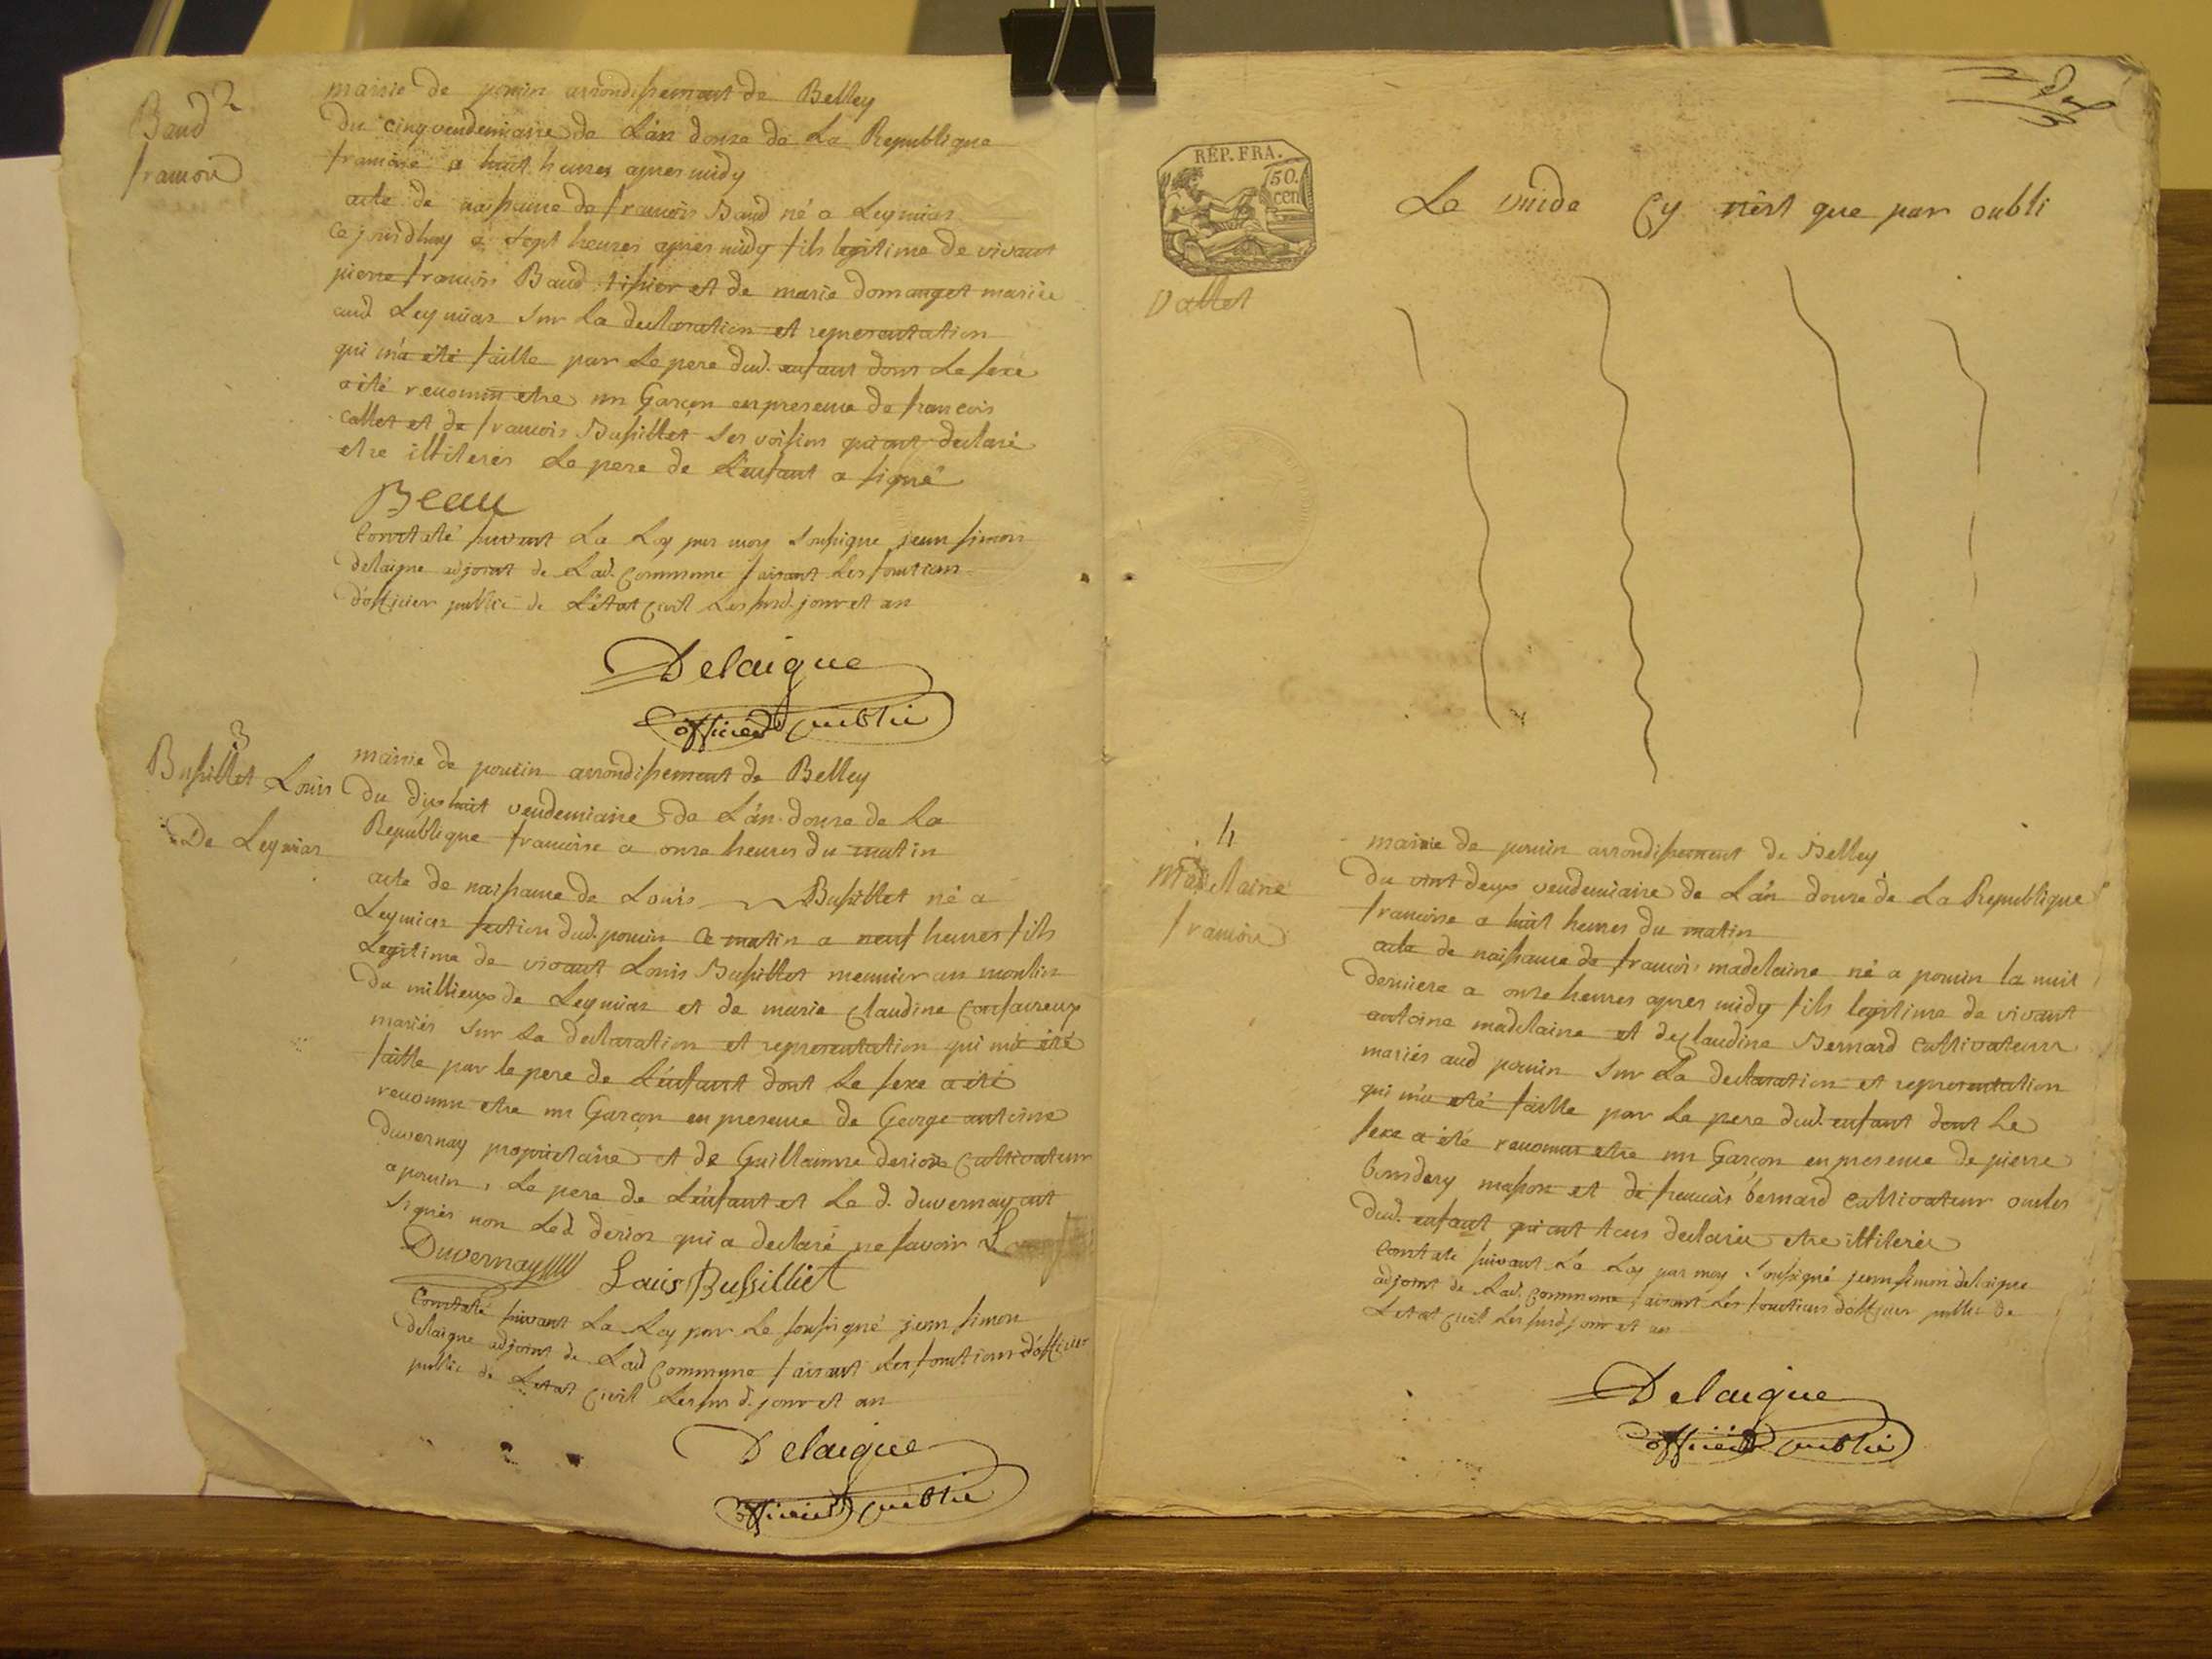 2
Baud
francois
mairie de poncin arrondissement de Belley
Du cinq vendemiaire de L'an douze de La Republique
francoise a huit heures apres midy
acte de naissance de francois Baud né a Leymiar
ce jourdhuy a sept heures apres midy fils legitime de vivant
pierre francois Baud tissier et de marie domanget mariés
aud Leymiar Sur La declaration et representation
qui m'a été faitte par Le pere dud. enfant dont Le sexe
a été reconnu etre un Garçon en presence de francois
callet et de francois Bussillet Ses voisins qui ont declaré
etre illiterés Le pere de L'enfant a signé
Beau
Constaté suivant La Loy par moy Soussigné jean simon
delaigue adjoint de Lad. Commune faisant Les fonctions
d'officier public de L'état Civil Les susd. jour et an
Delaigue
officier public
3
Bussillet Louis
De Leymiar
mairie de poncin arrondissement de Belley
Du dixhuit vendemiaire de L'an douze de La
Republique francoise a onze heures du matin
acte de naissance de Louis Bussillet né a
Leymiar section dud. poncin ce matin a neuf heures fils
Legitime de vivant Louis Bussillet meunier au moulin
du millieux de Leymiar et de marie Claudine
mariés Sur La declaration et representation qui m'a été
faitte par le pere de L'enfant dont Le sexe a été
reconnu etre un Garçon en presence de George antoine
duvernay proprietaire et de Guillaume derioz Cultivateur
a poncin, Le pere de L'enfant et Le d. duvernay ont
Signés non Led derioz qui a declaré ne savoir
Duvernay Louis Bussilliet
Constaté suivant La Loy par Le soussigné jean simon
delaigue adjoint de Lad Commune faisant Les fonctions d'officier
public de L'etat Civil Les sus d. jour et an
Delaigue
officier public
REP. FRA.
50.
cen
Vallet
Le vuide Cy n'est que par oubli
4
Madelaine
francois
mairie de poncin arrondissement de Belley
Du vint deux vendemiaire de L'an douze de La Republique
francoise a huit heures du matin
acte de naissance de francois madelaine né a poncin la nuit
derniere a onze heures apres midy fils legitime de vivant
antoine madelaine et de Claudine Bernard Cultivateurs
mariés aud poncin Sur La declaration et representation
qui m'a eté faitte par Le pere dud. enfant dont Le
sexe a été reconnu etre un Garçon en presence de pierre
masson et de francois bernard Cultivateur oncles
dud. enfant qui ont tous declarés etre illiterés
Constaté suivant La Loy par moy Soussigné jean simon delaigue
adjoint de Lad. Commune faisant Les fonctions d'officier public de
L'etat Civil Les susd jour et an
Delaigue
officier public